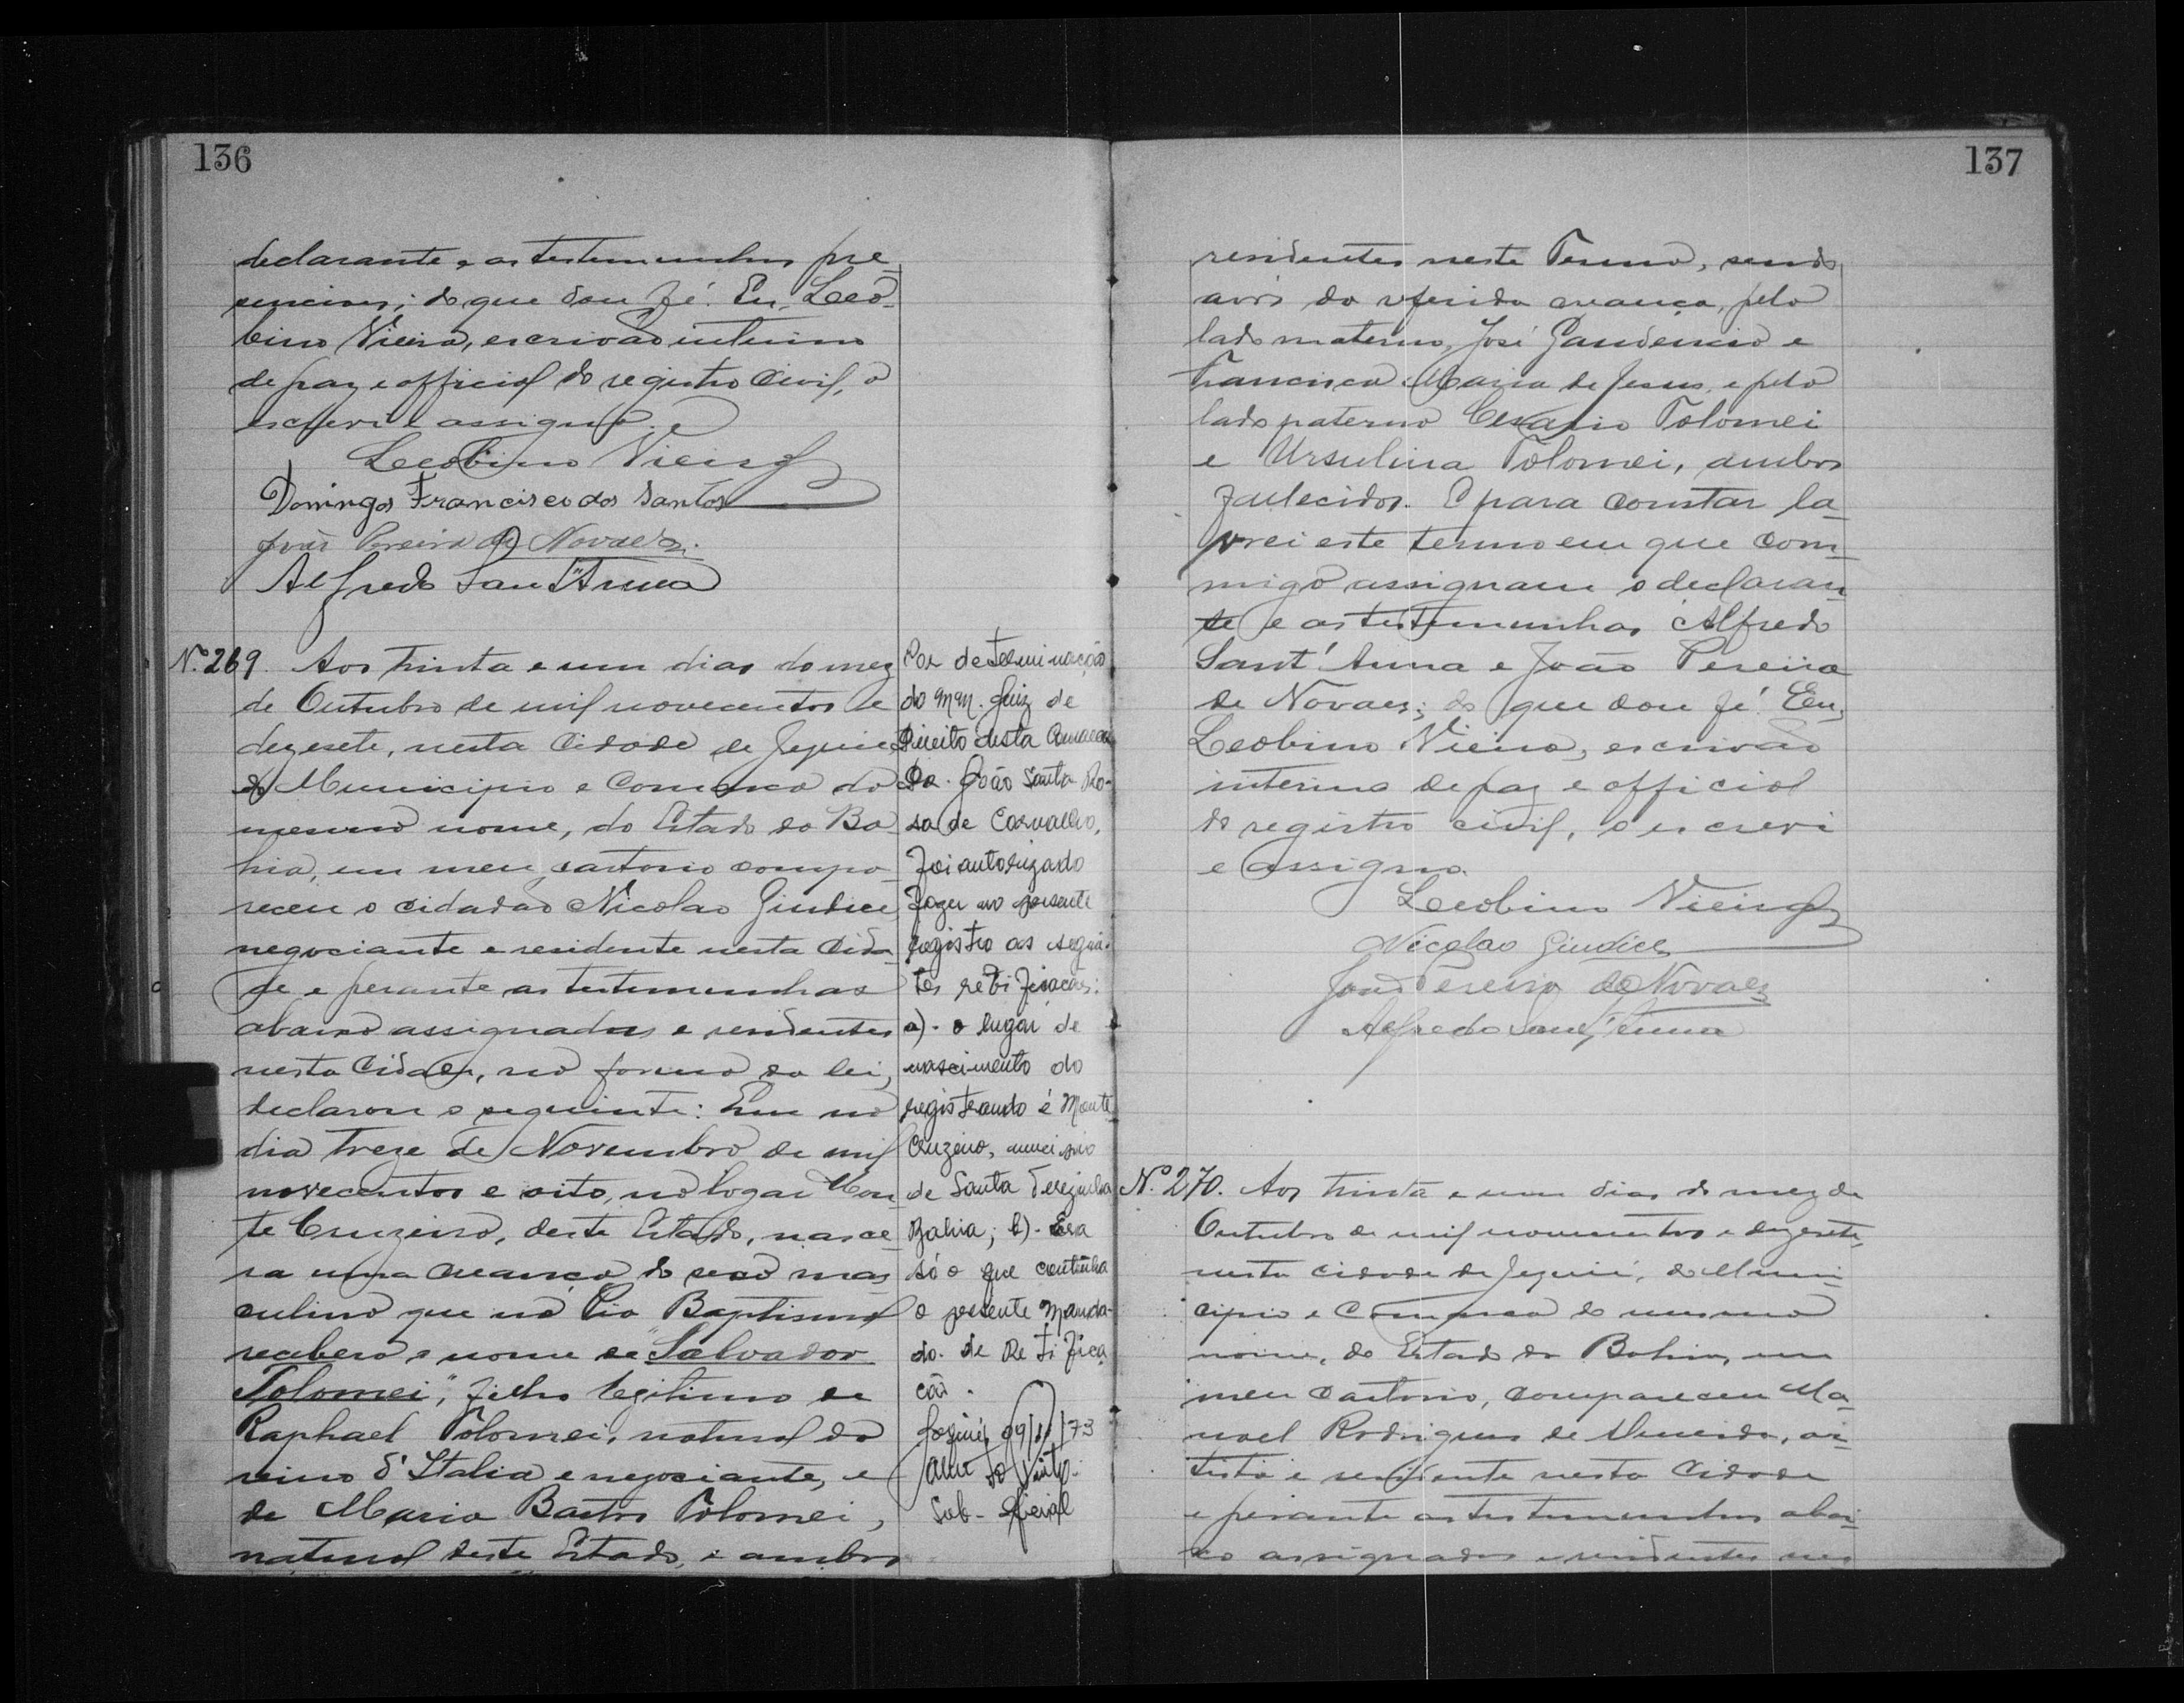 136
declarante e as testemunhas pre-
senciaes; do que dou fé. Eu, Leo-
bino Vieira, escrivão interino
de paz e official do registro Civil, o
escrevi e assigno.
Leobino Vieira
Domingos Francisco dos Santos
João Pereira de Novaes.
Alfredo Sant'Anna
Nº 269. Aos trinta e um dias do mez
de Outubro de mil novecentos e
dezesete, nesta Cidade de Jequié
do Municipio e Comarca do
mesmo nome, do Estado da Ba-
hia, em meu cartorio compa-
receu o cidadão Nicolao Giudice
negociante e residente nesta Cida-
de e perante as testemunhas
abaixo assignadas e residentes
nesta Cidade, na forma da lei,
declarou o seguinte: Em no
dia treze de Novembro de mil
novecentos e oito, no logar Mon-
te Cruzeiro, deste Estado, nasce-
ra uma creança do sexo mas-
culino que na Pia Baptismal
recebera o nome de "Salvador
Tolomei", filho legitimo de
Raphael Tolomei, natural do
reino d'Italia e negociante, e
de Maria Bastos Tolomei,
natural deste Estado, e ambos
Por determinação
do MM. Juiz de
Direito desta Comarca
Dr. João Santa Ro-
sa de Carvalho,
foi autorizado
fazer no presente
registro as seguin-
tes retificações:
a)- o lugar de
nascimento do
registrando é Monte
Cruzeiro, municipio
de Santa Terezinha
Bahia; b)- Era
só o que continha
o presente manda-
do de Retifica
ção.
Jequié, 09/11/73
Sub-Oficial
137
residentes neste Termo, sendo
avós da referida creança, pelo
lado materno, José Gaudencio e
Francisca Maria de Jesus, e pelo
lado paterno Cesario Tolomei
e Ursulina Tolomei, ambos
fallecidos. E para constar la-
vrei este termo em que com-
migo assignam o declaran-
te e as testemunhas Alfredo
Sant'Anna e João Pereira
de Novaes; do que dou fé. Eu,
Leobino Vieira, escrivão
interino de paz e official
do registro civil, o escrevi
e assigno.
Leobino Vieira
Nicolao Giudice
João Pereira de Novaes
Alfredo Sant'Anna
Nº 270. Aos trinta e um dias do mez de
Outubro de mil novecentos e dezesete,
nesta cidade de Jequié, do Muni-
cipio e Comarca do mesmo
nome, do Estado da Bahia, em
meu Cartorio, compareceu Ma-
noel Rodrigues de Almeida, ar-
tista e residente nesta Cidade
e perante as testemunhas abai-
xo assignadas e residentes nes-